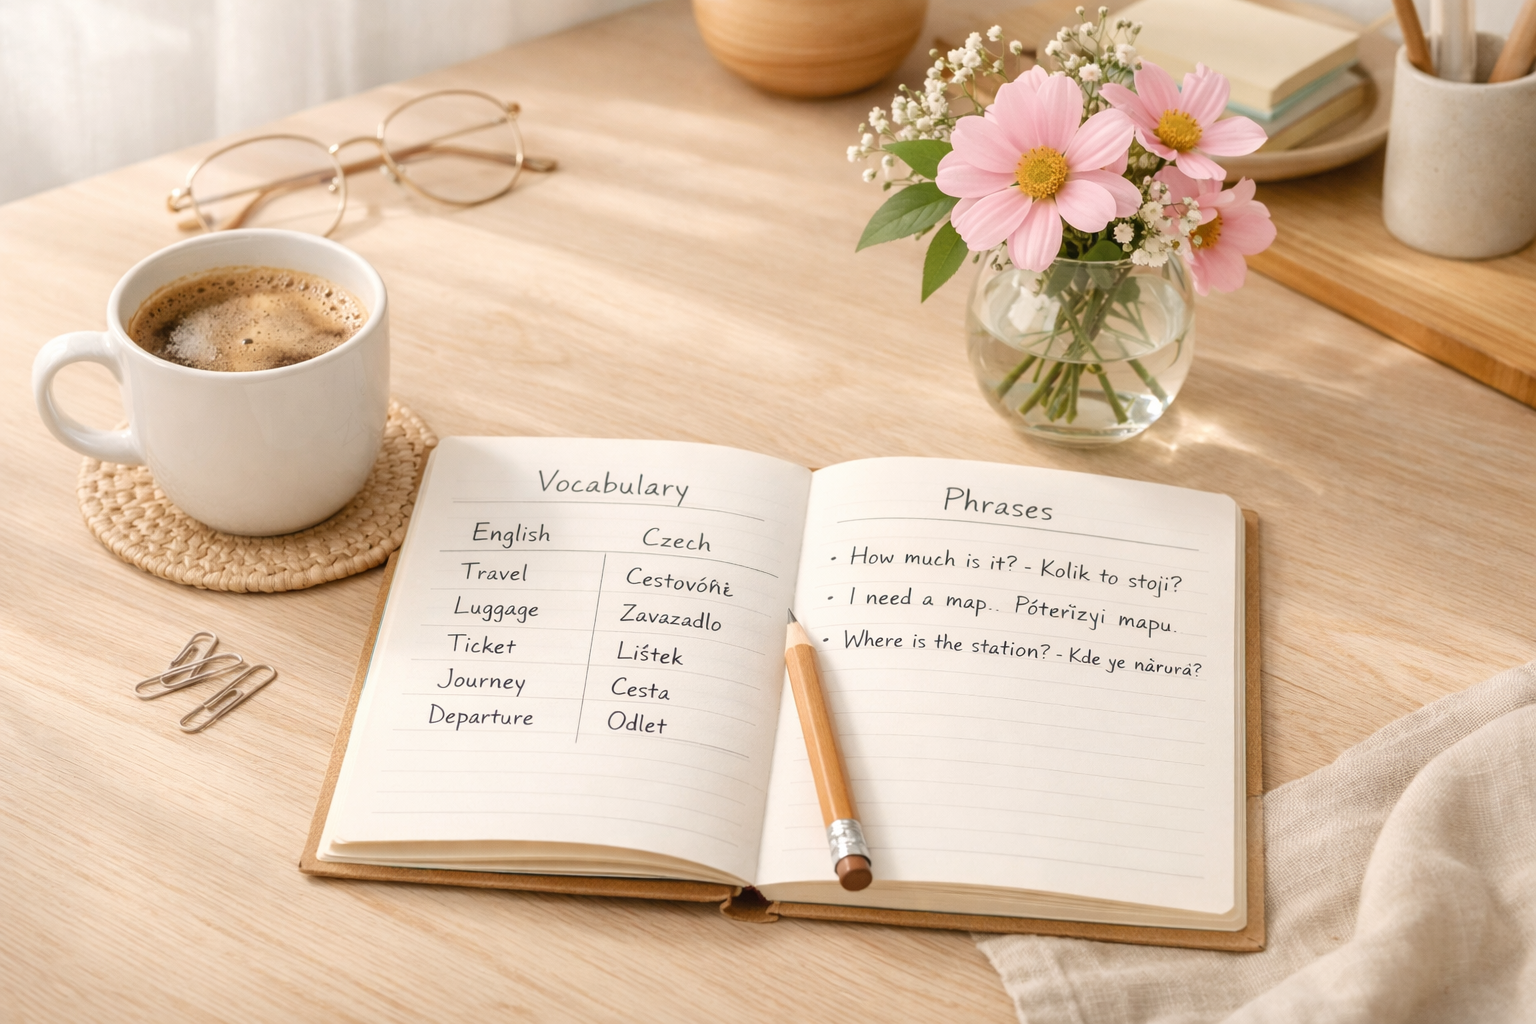 Vocabulary
English Czech
Travel
Luggage Zavazadlo
Ticket Liśtek
Journey Cesta
Departure Odlet
Phrases
• How much is it? - Kolik to stoji?
• I need a map.. Póterïzyi mapu.
• Where is the station? - Kde ye nàrurá?